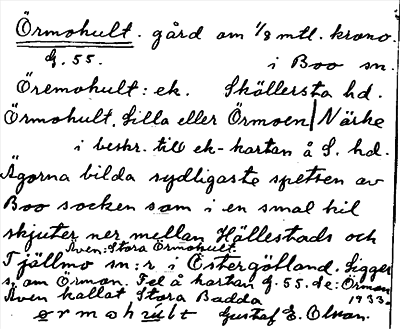 Örmohult. gård om 1/8 mtl. krono.
G. 55. i Boo sn.
Öremohult: ek. Skällersta hd.
Örmohult, Lilla eller Örmoen | Närke
i beskr. till ek-kartan å S. hd.
Ägorna bilda sydligaste spetsen av
Boo socken som i en smal kil
skjuter ner mellan Hällestads och
Även: Stora Örmohult.
Tjällmo sn:r i Östergötland. Ligger
s. om Örmon. Fel å kartan G. 55. de: Örmon
Även kallat Stora Badda 1933.
ormohult Gustaf E. Olson.